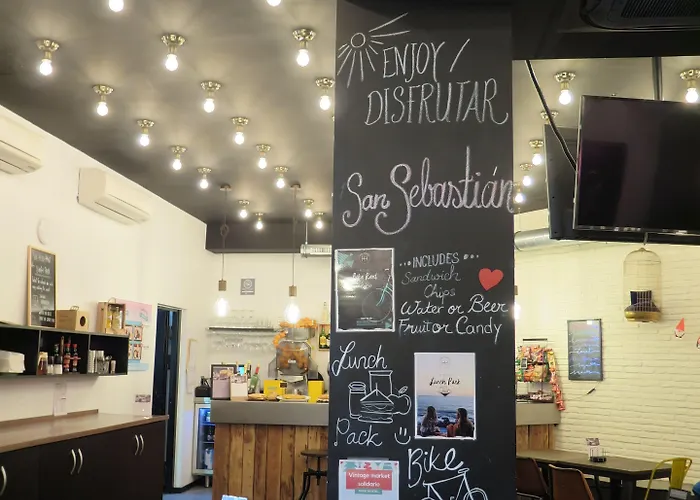 ENJOY/
DISFRUTAR
San Sebastián
INCLUDES
Sandwich
Chips
Water or Beer
Fruit or Candy
Bike Rent
Lunch
Pack
Lunch Pack
Vintage market
solidario
Bike